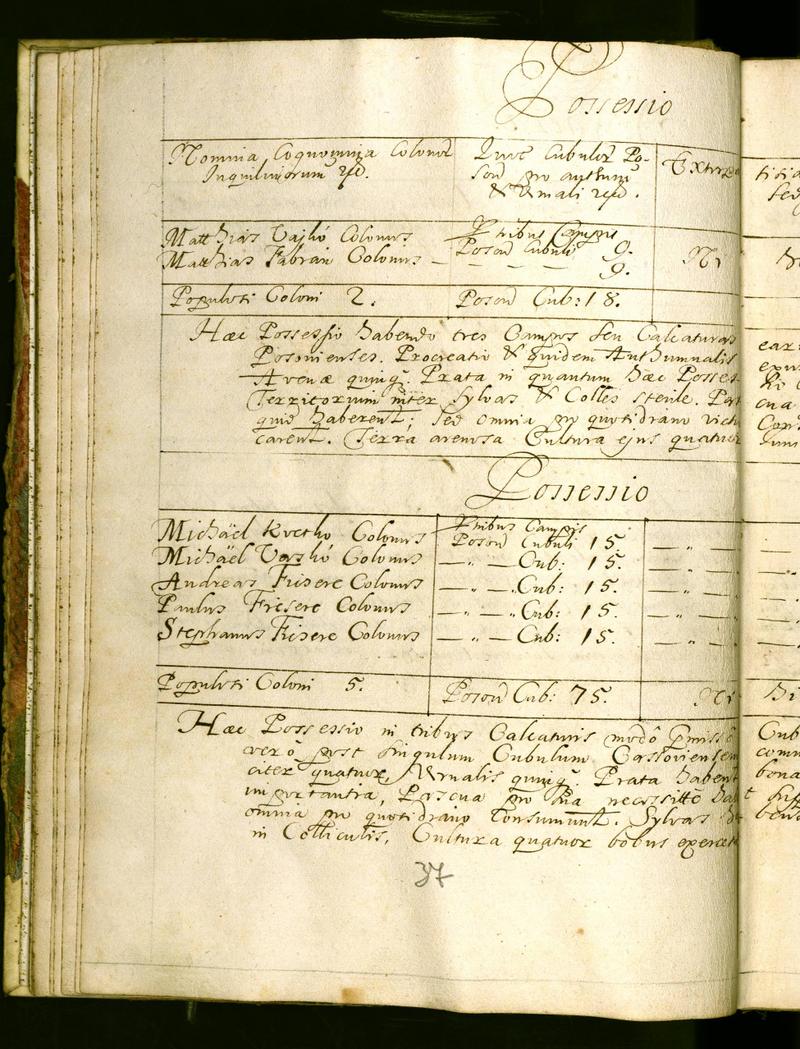 Possessio
Nomina, Cognomina Colonor̄ Quot Cubulor̄ Po- Extir
Inquilinorum son̄ pro authum titia
& Vernali
Matthias Vajkó Colonus In tribus Campis
Mathias Fabian Colonus Poson̄ Cubuli 9.
— — — 9.
Populosi Coloni 2. Poson̄ Cub: 18.
Hæc Possessio habendo tres Campos seu Calcaturas
Posonienses. Procreatio & quidem Authumnalis ear
Avenæ quinq̄. Prata in quantum hæc Posses
Territorium inter Sylvas & Colles sterile. Pa cua
quid haberent; sed omnia pro quotidiano victu
carent. Terra arenosa Cultura ejus quatuor
Possessio
Michäel Kvetko Colonus In tribus Campis
Poson̄ Cubuli 15. — „ —
Michäel Vaskó Colonus — „ — Cub: 15. — „ —
Andreas Fusere Colonus — „ — Cub: 15. — „ —
Paulus Fusere Colonus — „ — Cub: 15. — „ —
Stephanus Fusere Colonus — „ — Cub: 15. — „ —
Populosi Coloni 5. Poson̄ Cub: 75.
Hæc Possessio in tribus Calcaturis modô p̄missô Cub
verô post singulum Cubulum Cassoviensem com
citer quatuor, Vernalis quinq̄. Prata habent bona
importantia, Pascua pro sua necessitte ha
omnia pro quotidiano consumunt. Sylvas
in Colliculis, Cultura quatuor bobus exercet
37